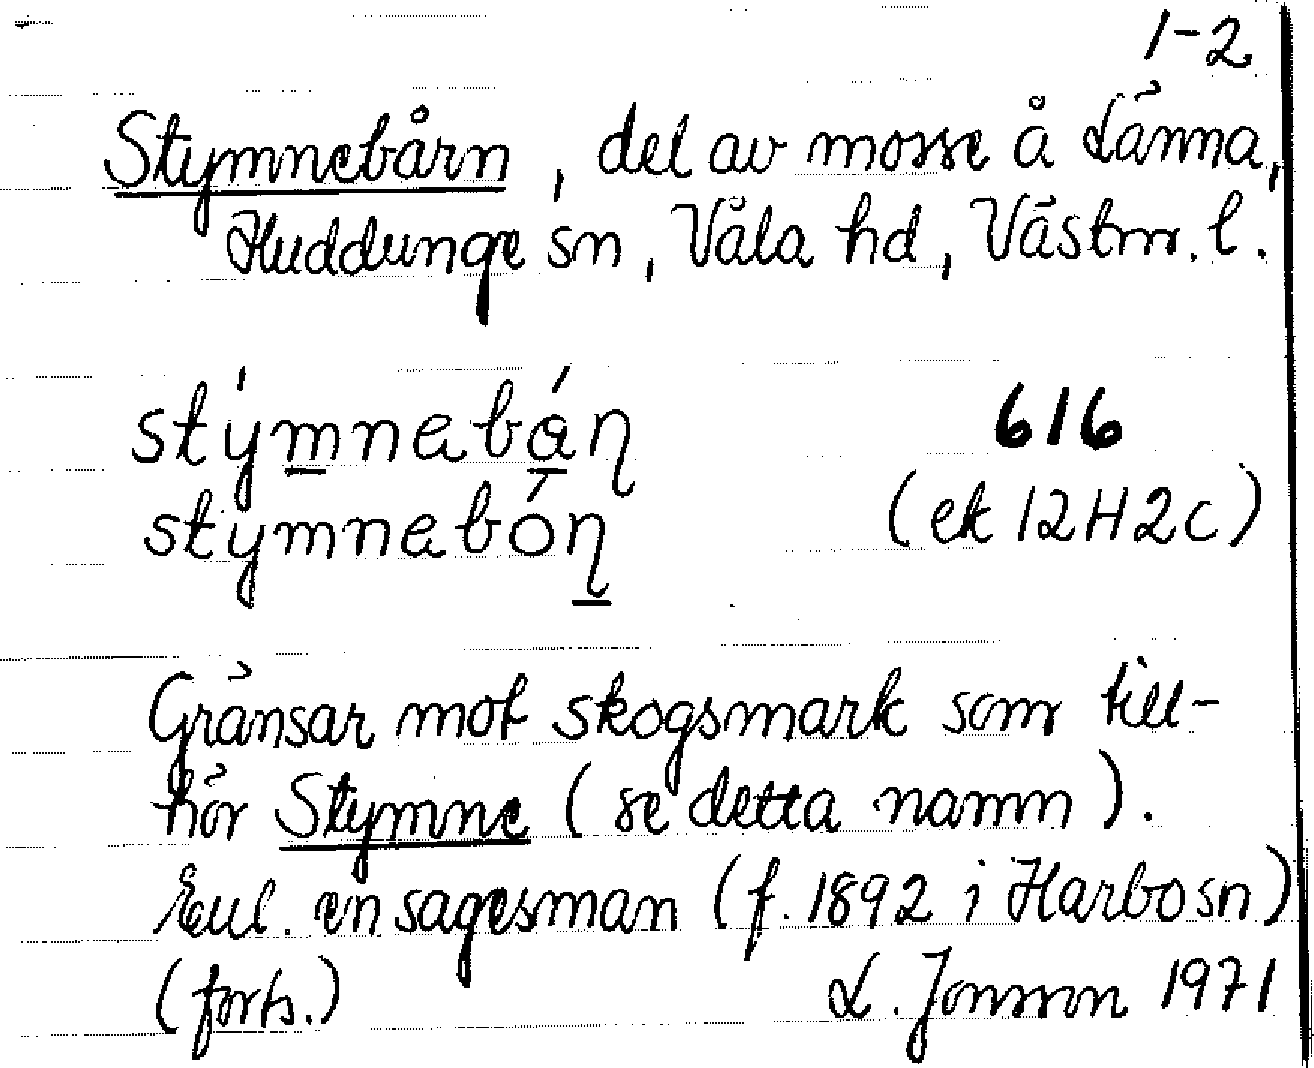 1-2
Stymnebårn, del av mosse å Länna,
Huddunge sn, Våla hd, Västm. l.
stýmnebáɳ 616
stymnebóɳ (ek 12H2c)
Gränsar mot skogsmark som till-
hör Stymne (se detta namn).
Enl. en sagesman (f. 1892 i Harbo sn)
(forts.) L. Jonsson 1971